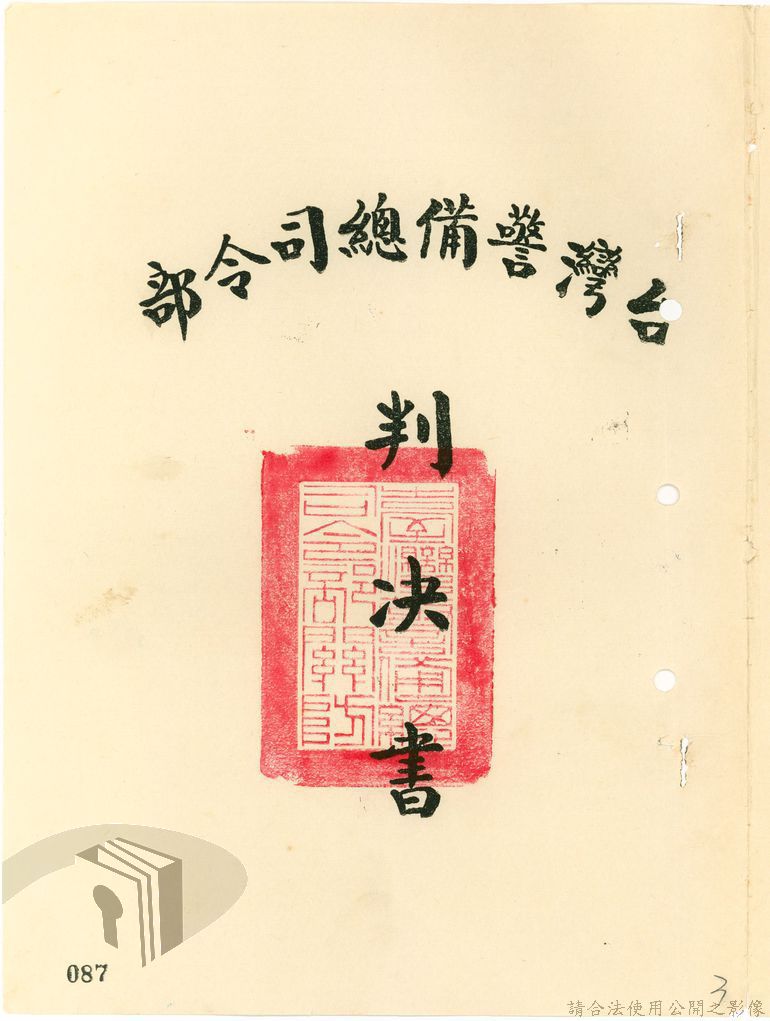 台灣警備總司令部
判決書
臺灣警備總
司令部關防
087
3
請合法使用公開之影像